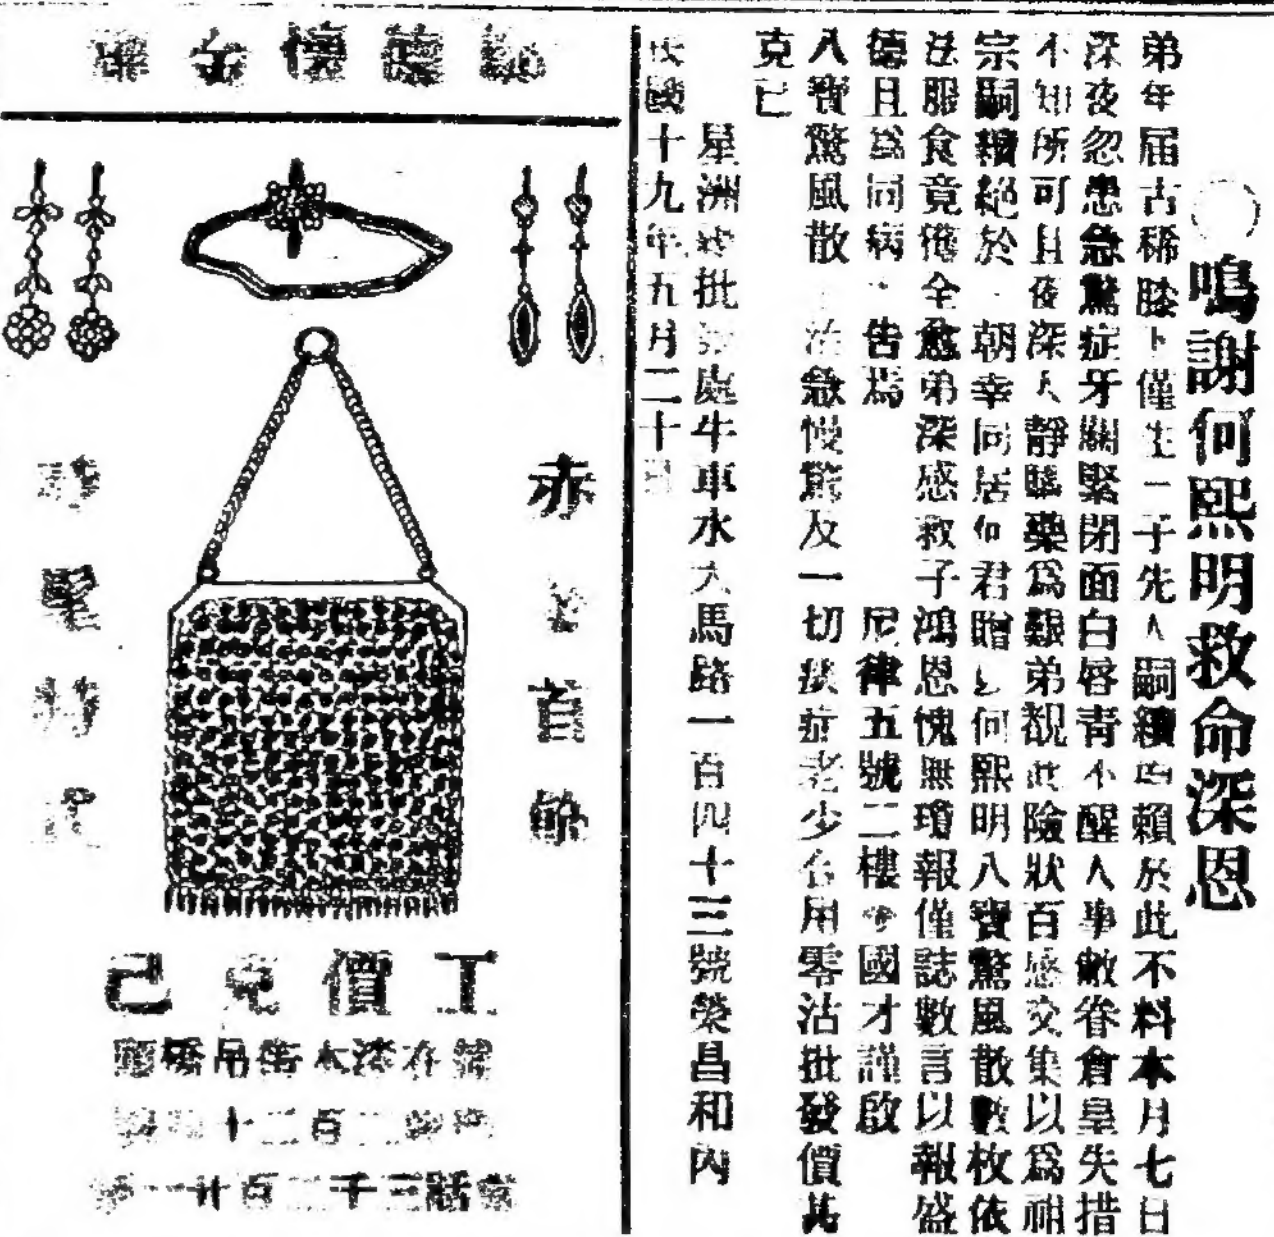 鳴謝何熙明救命深恩
弟年届古稀膝下僅生一子先人嗣續均賴於此不料本月七日
深夜忽患急驚症牙關緊閉面白唇青不醒人事敝眷倉皇失措
不知所可且夜深人靜購藥爲艱弟覩此險狀百感交集以爲祖
宗嗣續絕於一朝幸同居何君贈以何熙明八寶驚風散數枚依
法服食竟獲全愈弟深感救子鴻恩愧無瓊報僅誌數言以報盛
德且爲同病 告焉 尼律五號二樓 國才謹啟
八寶驚風散 治急慢驚及一切痰症老少合用零沽批發價甚
克已
星洲 批發處牛車水大馬路一百四十三號榮昌和內
民國十九年五月二十日
赤 首飾
工價克己
在漆木街吊橋頭
門牌二百二十 號
電話三千二百廿一號